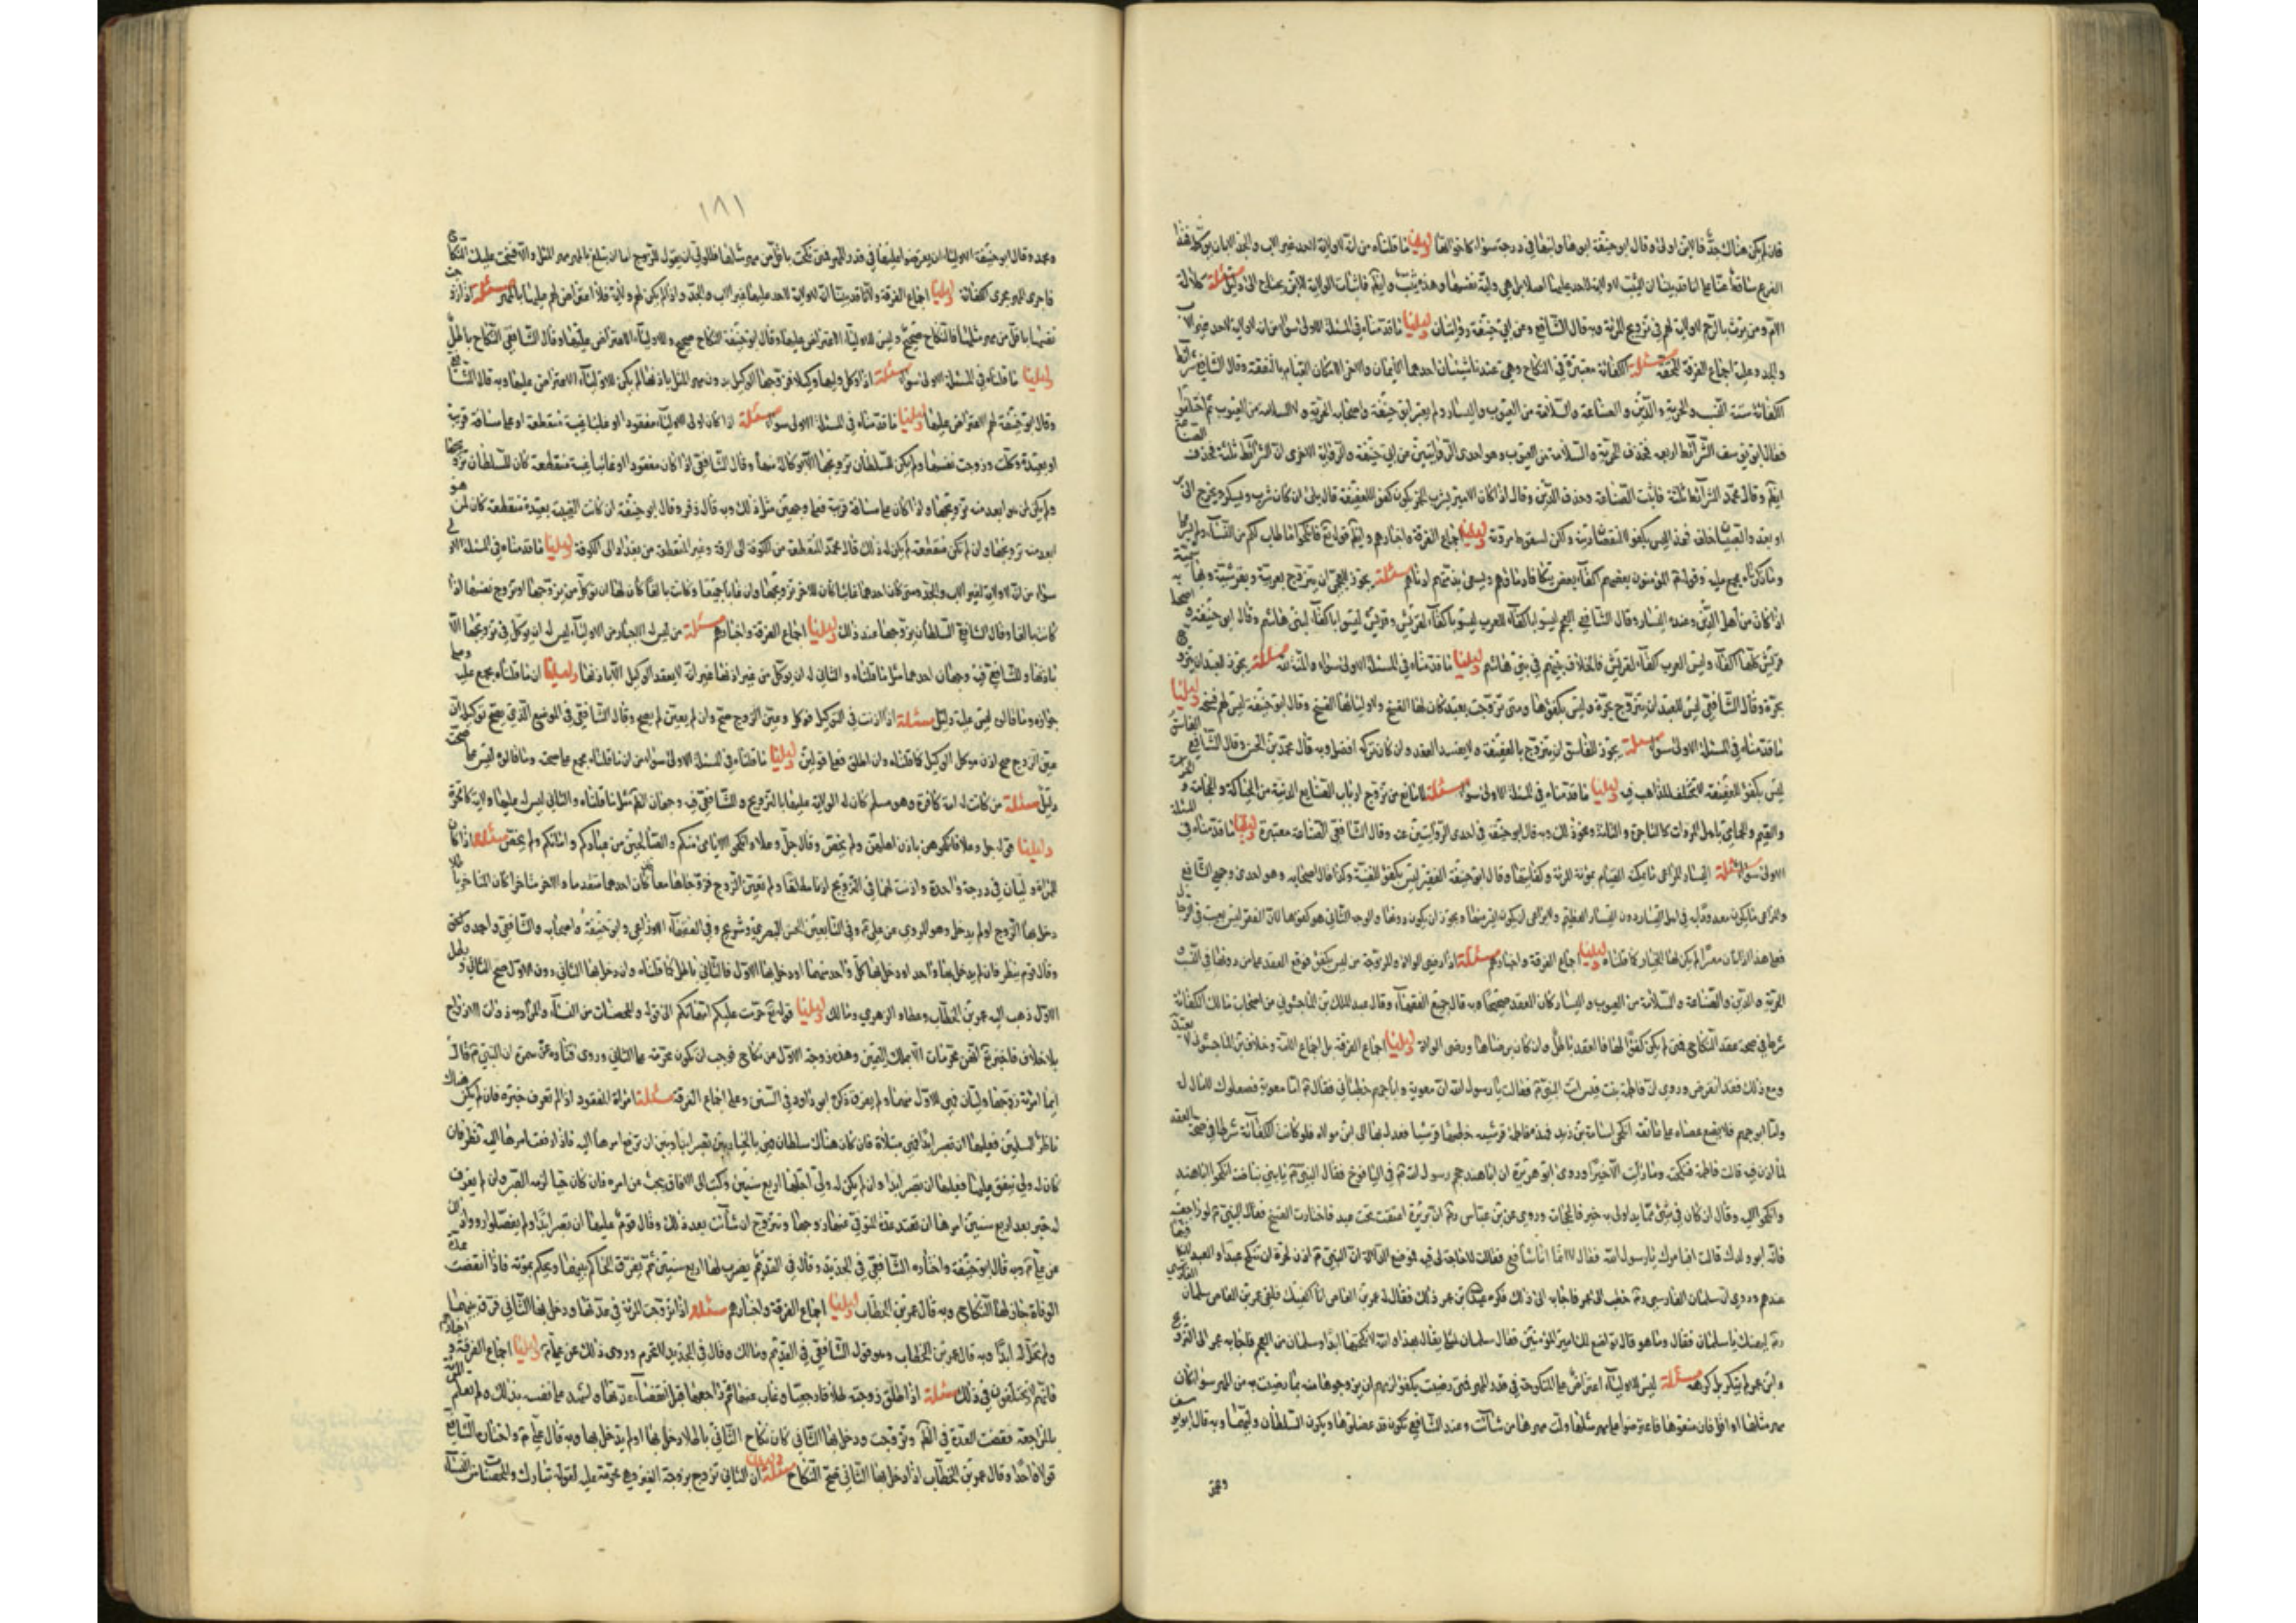 فان لم يكن هناك جد فالابن اولى وقال ابو حنيفة ابوها وابنها في درجة سواء كما خوالفنا دليلنا ما قلناه من انه لا ولاية لاحد غير الاب والجد الابان بن كلمة هذا
الفرع ساقط عنا على انا قد بينا ان الثيب لا ولاية لاحد عليها اصلا بل هي ولية نفسها وهذه ثيب وايضا فاثبات الولاية للابن يحتاج الى دليل مسئلة كلالة
الام ومن يرث بالرحم لا ولاية لهم في تزويج المرئة وبه قال الشافعي وعن ابي حنيفة روايتان دليلنا ما قدمناه في المسئلة الاولى سواء من ان لا ولاية لاحد غير الاب
والجد وعليه اجماع الفرقة المحقة مسئلة الكفائة معتبرة في النكاح وهي عندنا شيئان احدهما الايمان والاخر امكان القيام بالنفقة وقال الشافعي شرائط
الكفائة ستة النسب والحرية والدين والصناعة والسلامة من العيوب واليسار ولم يعتبر ابو حنيفة واصحابه الحرية ولا السلامة من العيوب ثم اختلفوا
فقال ابو يوسف الشرائط اربعة فحذف الحرية والسلامة من العيوب وهو احدى الروايتين عن ابي حنيفة والرواية الاخرى ان الشرائط ثلثة فحذف الصناعة
ايضا وقال محمد الشرائط ثلثة فاثبت الصناعة وحذف الدين وقال اذا كان الامير يشرب الخمر يكون كفوا للعفيفة قال بلى ان كان يشرب ويسكر ويخرج الى برا
او يعدو الصبيان خلفه فهذا ليس بكفو لا لنقصان دينه ولكن لسقوط مروته دليلنا اجماع الفرقة واخبارهم وايضا قوله تع فانكحوا ما طاب لكم من النساء ولم يشرط
وما ذكرناه مجمع عليه وقوله ع المؤمنون بعضهم اكفاء بعض تتكافا دماؤهم ويسعى بذمتهم ادناهم مسئلة يجوز للعجمي ان يتزوج بعربية وبقرشية وهاشمية
اذا كان من اهل الدين وعنده اليسار وقال الشافعي العجم ليسوا باكفاء للعرب والعرب ليسوا باكفاء لقريش وقريش ليسوا باكفاء لبني هاشم وقال ابو حنيفة واصحابه
قريش كلها اكفاء وليس العرب كفاء لقريش فالخلاف بينهم في بني هاشم دليلنا ما قدمناه في المسئلة الاولى سواء والمنة لله مسئلة يجوز للعبد ان يتزوج
بحرة وقال الشافعي ليس للعبد ان يتزوج بحرة وليس بكفو لها ومتى تزوجت بعبد كان لها الفسخ ولاوليائها الفسخ وقال ابو حنيفة ليس لهم فسخه دليلنا
ما قدمناه في المسئلة الاولى سواء مسئلة يجوز للفاسق ان يتزوج بالعفيفة ولا يفسد العقد وان كان تركه افضل وبه قال محمد بن الحسن وقال الشافعي الفاسق
ليس بكفو للعفيفة دليلنا ما قدمناه في المسئلة الاولى سواء مسئلة لا مانع من تزوج ارباب الصنايع الدنية من الحياكة والحجامة والحراسة
والقيم والحمامي باهل المروات كالتجارة والتناية ونحو ذلك وبه قال ابو حنيفة في احدى الروايتين عنه وقال الشافعي الصناعة معتبرة دليلنا ما قدمناه في المسئلة
الاولى سواء مسئلة اليسار المراعى ما يمكنه القيام بمؤنة المرئة وكفايتها وقال ابو حنيفة الفقير ليس بكفو للغنية وكذا قال اصحابه وهو احد وجهي الشافعي
والمراعى ما يكون معدودا به في اهل اليسار دون اليسار العظيم ولا يراعى ان يكون ايسر منها ويجوز ان يكون دونها والوجه الثاني هو كفو لها لان الفقر ليس بعيب في الرجال
فعلى هذا اذا بان معسرا لم يكن لها الخيار كما قلناه دليلنا اجماع الفرقة واخبارهم مسئلة اذا رضي الولاة والمزوجة من ليس بكفو فوقع العقد على من دونها في النسب
والحرية والدين والصناعة والسلامة من العيوب واليسار كان العقد صحيحا وبه قال جميع الفقهاء وقال عبد الملك بن الماجشون من اصحاب مالك الكفائة
شرط في صحة عقد النكاح فمتى لم يكن كفوا لها فالعقد باطل وان كان برضاها ورضى الولاة دليلنا اجماع الفرقة بل اجماع الامة وخلاف ابن الماجشون لا يعتد به
ومع ذلك فقد انقرض وروى ان فاطمة بنت قيس اتت النبي ص فقالت يا رسول الله ان معوية وابا جهم خطباني فقال ص اما معوية فصعلوك لا مال له
واما ابو جهم فلا يضع عصاه على عاتقه انكحي اسامة بن زيد فهذه فاطمة قرشية خطبها قرشيان فعدل بها الى ابن مولاه فلو كانت الكفائة شرطا في صحة العقد
لما اذن فيه قالت فاطمة فنكحته وما زالت الا خيرا وروى ابو هريرة ان ابا هند حجم رسول الله ص في اليافوخ فقال النبي ص يا بني بياضة انكحوا ابا هند
وانكحوا اليه وقال ان كان في شيء مما يداوى به خير فالحجامة وروى عن ابن عباس ره ان بريرة اعتقت تحت عبد فاختارت الفسخ فقال النبي ص لو راجعتيه
فانه ابو ولدك قالت افبامرك يا رسول الله فقال لا انما انا شافع فقالت لا حاجة لي فيه فوضع الدلالة ان النبي ص اذن لحرة ان تنكح عبدا والعبد ليس كفوا
عندهم وروى ان سلمان الفارسي ره خطب الى عمر فاجابه الى ذلك فكره عبد الله بن عمر ذلك فقال له عمرو بن العاص انا اكفيك فلقي عمرو بن العاص سلمان
ره ليهنك يا سلمان فقال وما هو قال تواضع لك امير المؤمنين فقال سلمان لمثلي يقال هذا والله لا نكحتها ابدا وسلمان من العجم فاجابه عمر الى التزويج
وابن عمر لم ينكر بل كرهه مسئلة ليس للاولياء اعتراض على المنكوحة في قدر المهر فمتى رضيت بكفو لزمهم ان يزوجوها منه بما رضيت به من المهر سواء كان
مهر مثلها او اقل فان منعوها فاعترضوا على مهر مثلها ولت امرها من شاءت وعند الشافعي يكون قد عضلوها ويكون السلطان وليها وبه قال ابو يوسف
ومحمد
١٨١
ومحمد وقال ابو حنيفة للاولياء ان يعترضوا عليها في قدر المهر فمتى نكحت باقل من مهر مثلها فللولي ان يقول للزوج اما ان تبلغ بالمهر مهر المثل والا فسخت عليك النكاح
فاجرى المهر مجرى الكفائة دليلنا اجماع الفرقة ولانا قد بينا انه لا ولاية لاحد عليها غير الاب والجد واذا لم يكن لهم ولاية فلا اعتراض لهم عليها بالمهر مسئلة اذا زوجت
نفسها باقل من مهر مثلها فالنكاح صحيح وليس للاولياء الاعتراض عليها وقال ابو حنيفة النكاح صحيح وللاولياء الاعتراض عليها وقال الشافعي النكاح باطل
دليلنا ما قلناه في المسئلة الاولى سواء مسئلة اذا وكل وليها وكيلا فزوجها الوكيل بدون مهر المثل باذنها لم يكن للاولياء الاعتراض عليها وبه قال الشافعي
وقال ابو حنيفة لهم الاعتراض عليها دليلنا ما قدمناه في المسئلة الاولى سواء مسئلة اذا كان اولى الاولياء مفقودا او غائبا غيبة منقطعة او على مسافة قريبة
او بعيدة وكلت وزوجت نفسها ولم يكن للسلطان تزويجها الا بوكالة منها وقال الشافعي اذا كان مفقودا او غائبا غيبة منقطعة كان للسلطان تزويجها
ولم يكن لمن هو ابعد منه تزويجها واذا كان على مسافة قريبة فعلى وجهين مثل ذلك وبه قال زفر وقال ابو حنيفة ان كانت الغيبة بعيدة منقطعة كان لمن هو
ابعد منه تزويجها وان لم تكن منقطعة لم يكن له ذلك قال محمد المنقطعة من الكوفة الى الرقة وغير المنقطعة من بغداد الى الكوفة دليلنا ما قدمناه في المسئلة الاولى
سواء من انه لا ولاية لغير الاب والجد ومتى كان احدهما غائبا كان للاخر تزويجها وان غابا جميعا وكانت بالغا كان لها ان توكل من يزوجها او تزوج نفسها اذا
كانت بالغا وقال الشافعي السلطان يزوجها عند ذلك دليلنا اجماع الفرقة واخبارهم مسئلة من ليس له الاجبار من الاولياء ليس له ان يوكل في تزويجها الا
باذنها وللشافعي فيه وجهان احدهما مثل ما قلناه والثاني له ان يوكل من غير اذنها غير انه لا يعقد الوكيل الا باذنها دليلنا ان ما قلناه مجمع عليه
جوازه وما قالوه ليس عليه دليل مسئلة اذا اذنت في التوكيل فوكل وعين الزوج صح وان لم يعين لم يصح وقال الشافعي في الموضع الذي يصح توكيله ان
عين الزوج صح اذن موكل الوكيل كما قلناه وان اطلق فعلى قولين دليلنا ما قلناه في المسئلة الاولى سواء من ان ما قلناه مجمع على صحته وما قالوه ليس على صحته
دليل مسئلة من كانت له امة كافرة وهو مسلم كان له الولاية عليها بالتزويج وللشافعي فيه وجهان احدهما مثل ما قلناه والثاني ليس له عليها ولاية كالحرة
دليلنا قوله جل وعلا فانكحوهن باذن اهلهن ولم يخص وقال جل وعلا وانكحوا الايامى منكم والصالحين من عبادكم وامائكم ولم يخص مسئلة اذا كان
للمرئة وليان في درجة واحدة واذنت لهما في التزويج اذنا مطلقا ولم تعين الزوج فزوجاها معا كان احدهما متقدما والاخر متاخرا كان المتاخر باطلا
دخل بها الزوج او لم يدخل وهو المروي عن علي ع وفي التابعين الحسن البصري وشريح وفي الفقهاء الاوزاعي وابو حنيفة واصحابه والشافعي واحمد واسحق
وقال قوم ينظر فان لم يدخل بها واحد او دخل بها كل واحد منهما او دخل بها الاول فالثاني باطل كما قلناه وان دخل بها الثاني دون الاول صح الثاني وبطل
الاول ذهب اليه عمر بن الخطاب وعطاء والزهري ومالك دليلنا قوله تع حرمت عليكم امهاتكم الى قوله والمحصنات من النساء والمراد به ذوات الازواج
بلا خلاف فاخبر تع انهن محرمات الا بملك اليمين وهذه زوجة الاول من نكاح فوجب ان تكون محرمة على الثاني وروى قتادة عن سمرة ان النبي ص قال
ايما امرئة زوجها وليان فهي للاول منهما ولم يفرق ذكره ابو داود في السنن وعليه اجماع الفرقة مسئلة امراة المفقود اذا لم تعرف خبره فان لم يكن هناك
ناظر للمسلمين فعليها ان تصبر ابدا فهي مبتلاة فان كان هناك سلطان فهي بالخيار بين ان تصبر ابدا وبين ان ترفع امرها اليه فاذا رفعت امرها اليه نظر فان
كان له ولي ينفق عليها فعليها ان تصبر ابدا وان لم يكن له ولي اجلها اربع سنين وكتب الى الافاق يبحث عن امره فان كان حيا لزمها الصبر وان لم يعرف
له خبر بعد اربع سنين امرها ان تعتد عدة المتوفى عنها زوجها وتتزوج ان شاءت بعد ذلك وقال قوم عليها ان تصبر ابدا ولم يفصلوا رووا ذلك
عن علي ع وبه قال ابو حنيفة واختاره الشافعي في الجديد وقال في القديم يضرب لها اربع سنين ثم يفرق الحاكم بينهما ويحكم بموته فاذا انقضت عدة
الوفاة جاز لها النكاح وبه قال عمر بن الخطاب دليلنا اجماع الفرقة واخبارهم مسئلة اذا تزوجت المرئة في عدتها ودخل بها الثاني فرق بينهما
ولم تحل له ابدا وبه قال عمر بن الخطاب وهو قول الشافعي في القديم ومالك وقال في الجديد لا تحرم وروى ذلك عن علي ع دليلنا اجماع الفرقة واخبارهم
فانهم لا يختلفون في ذلك مسئلة اذا طلق زوجته طلاقا رجعيا وغاب عنها ثم راجعها قبل انقضاء عدتها واشهد على نفسه بذلك ولم تعلم المرئة
بالمراجعة فقضت العدة في الظاهر وتزوجت ودخل بها الثاني كان نكاح الثاني باطلا دخل بها او لم يدخل بها وبه قال علي ع واختاره الشافعي
قولا واحدا وقال عمر بن الخطاب اذا دخل بها الثاني صح النكاح دليلنا ان الثاني تزوج بزوجة الغير وهي محرمة عليه لقوله تبارك والمحصنات من النساء